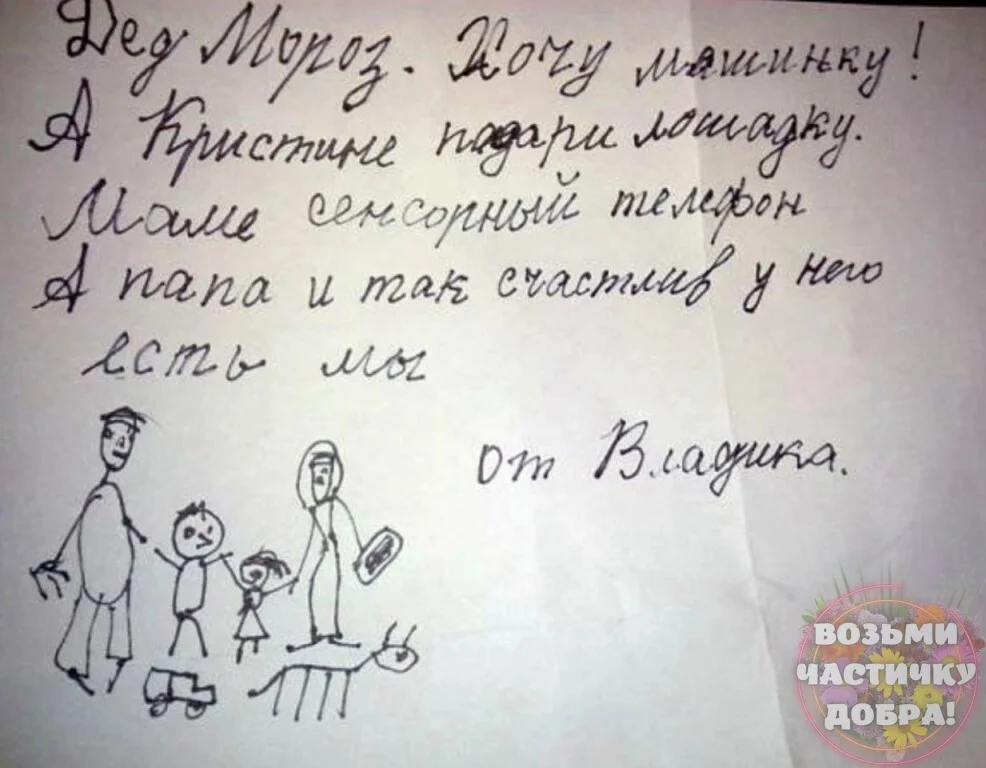 Дед Мороз. Хочу машинку!
А Кристине падари лошадку.
Маме сенсорный телефон
А папа и так счастлив у него
есть мы
от Владика.
ВОЗЬМИ
ЧАСТИЧКУ
ДОБРА!